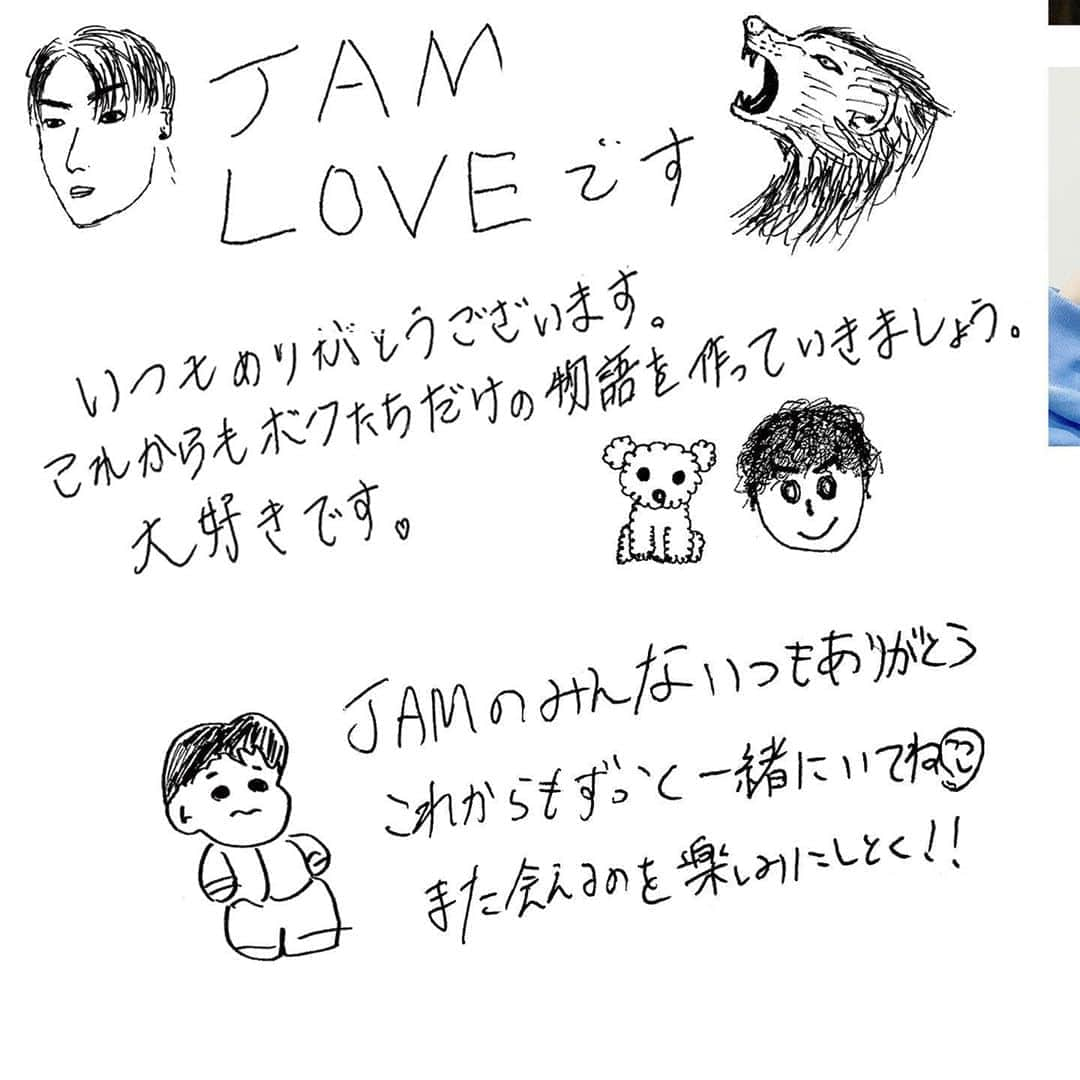 JAM
LOVEです
いつもありがとうございます。
これからもボクたちだけの物語を作っていきましょう。
大好きです。♡
JAMのみんないつもありがとう
これからもずっと一緒にいてね
また会えるのを楽しみにしとく!!